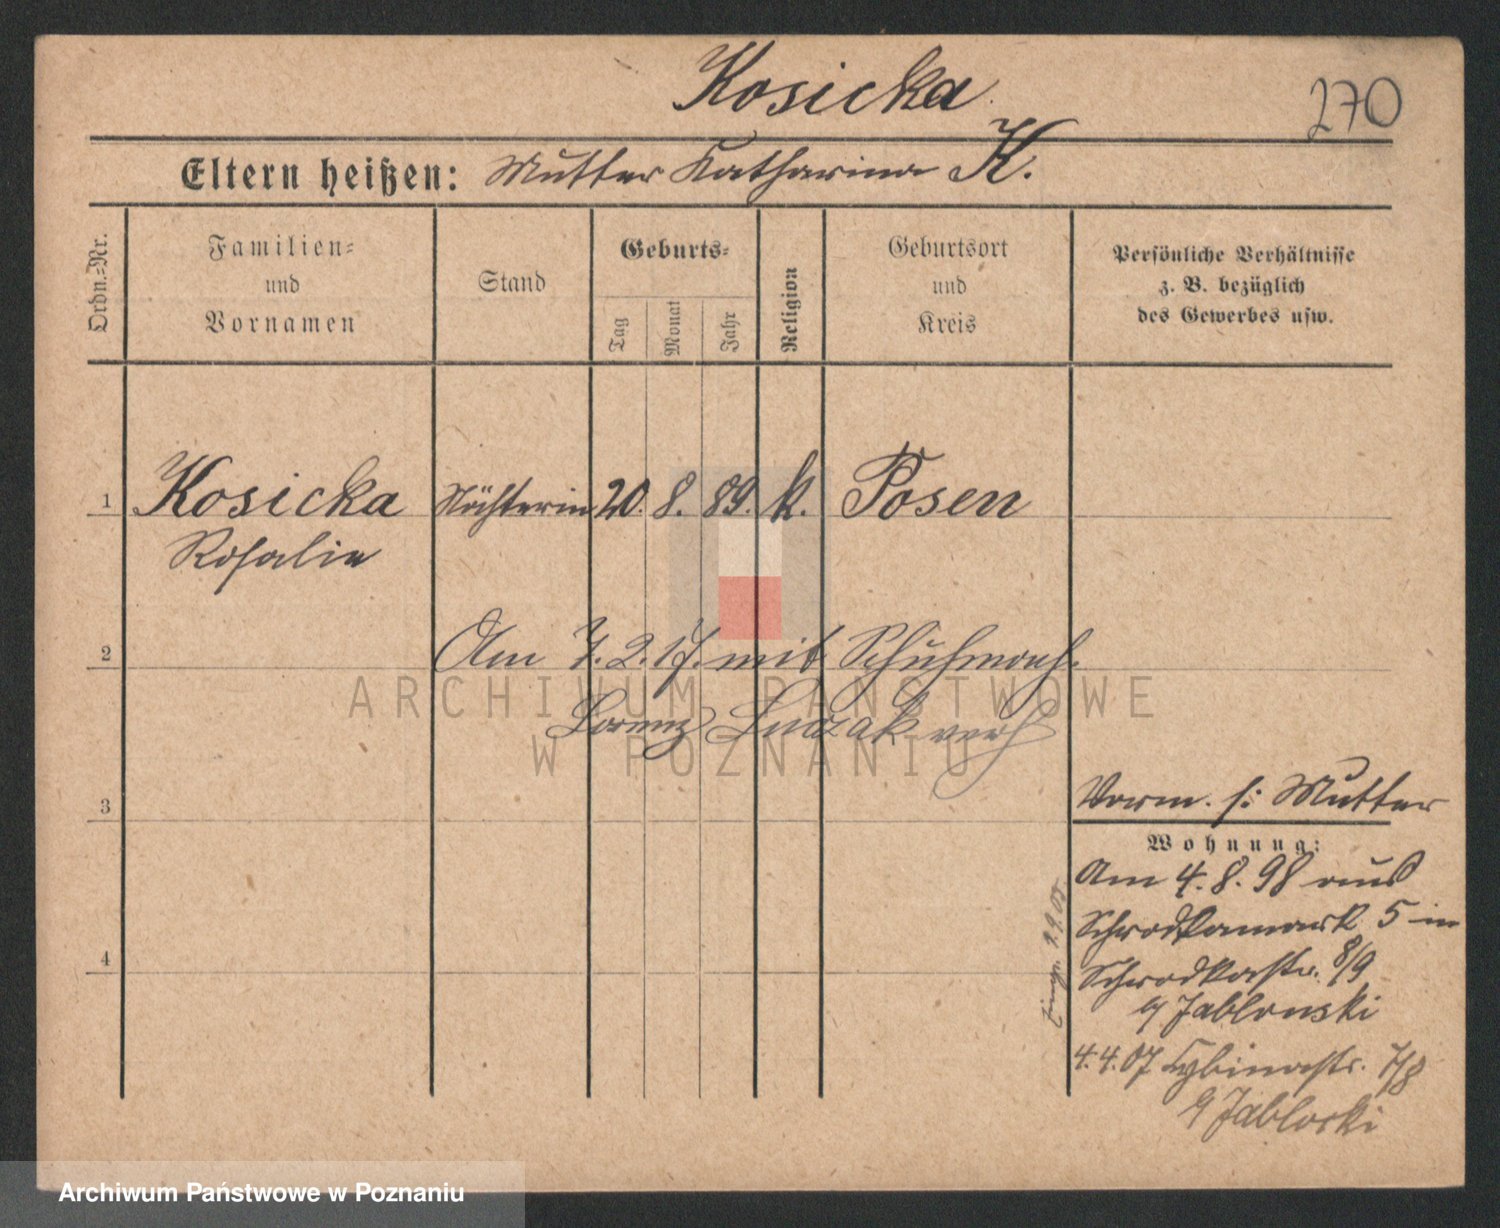 Kosicka
270
Eltern heißen: Mutter Katharina K.
Ordn.=Nr.
Familien=
und
Vornamen
Stand
Geburts=
Tag
Monat
Jahr
Religion
Geburtsort
und
Kreis
Persönliche Verhältnisse
z. B. bezüglich
des Gewerbes usw.
1 Kosicka Nähterin 20. 8. 89. k. Posen
Rosalie
2 Am 7. 2. 17. mit Schuhmach.
Lorenz verh
ARCHIWUM PAŃSTWOWE
W POZNANIU
3
Vorm. s: Mutter
Wohnung:
Am 4. 8. 98 aus
Schrodkamark 5 in
Schrodkastr. 8/9
Jablonski
4
4.4.07 Cybinastr. 7/8
Jabloski
Archiwum Państwowe w Poznaniu